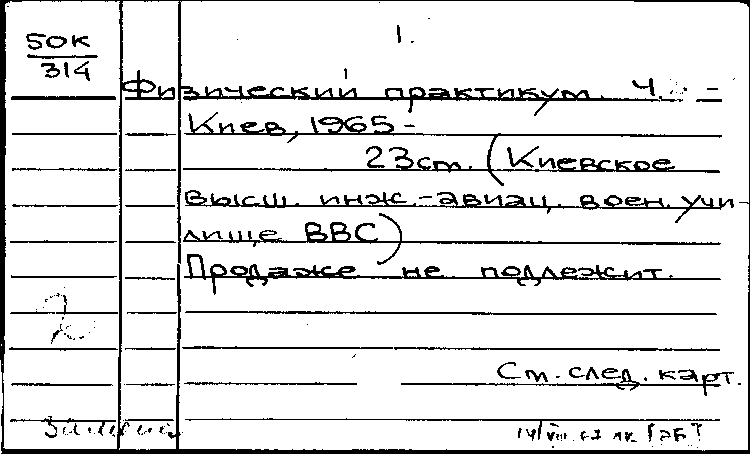 50К
314
1.
Физический практикум. Ч. -
Киев, 1965-
23см. (Киевское
высш. инж.-авиац. воен. учи-
лище ВВС)
Продаже не подлежит.
2
См. след. карт.
14/VIII